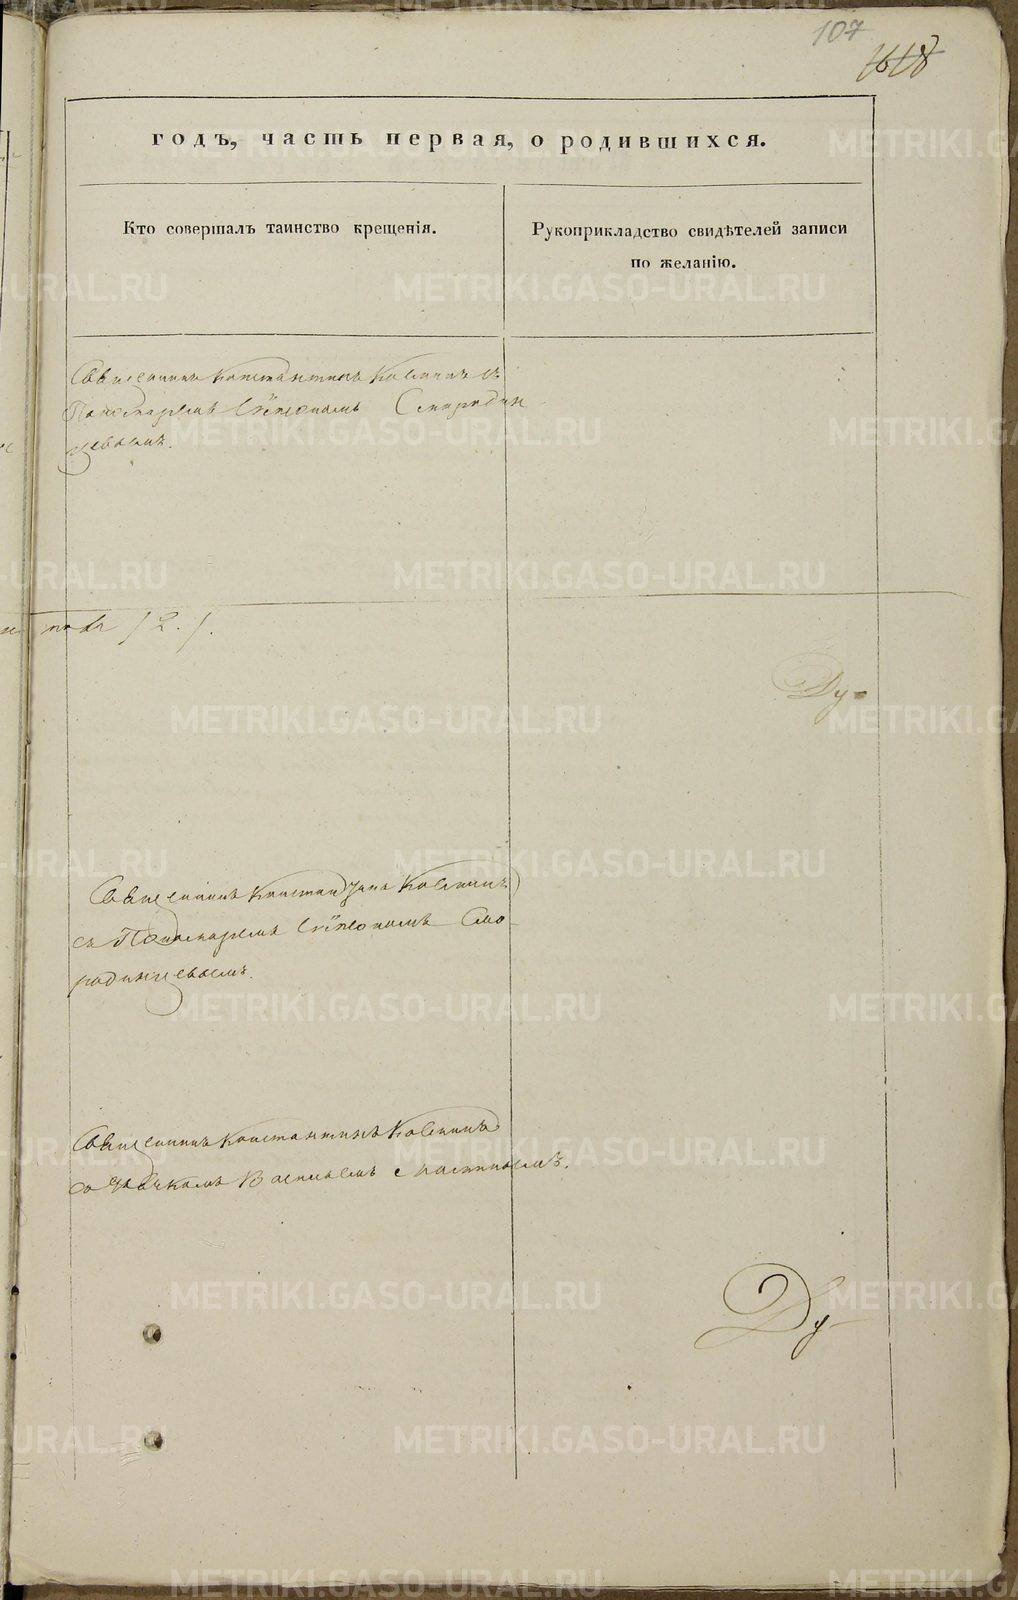 107
годъ, часть первая, о родившихся.
Кто совершалъ таинство крещенія.
Рукоприкладство свидѣтелей записи
по желанію.
Священникъ Константинъ съ
Пономаремъ Стефаномъ Смородин
цевымъ.
/2./.
Ду-
Священникъ Константинъ
съ Пономаремъ Стефаномъ Смо-
родинцевымъ.
Священникъ Константинъ
со Дьячкомъ
Ду-
METRIKI.GASO-URAL.RU